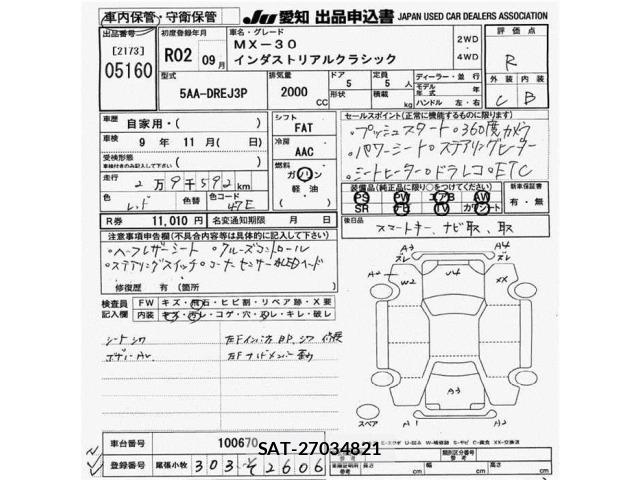 車内保管・守衛保管
JU 愛知 出品申込書 JAPAN USED CAR DEALERS ASSOCIATION
出品番号
[2173]
05160
初度登録年月
R02 09月
車名・グレード
MX-30
インダストリアルクラシック
2WD
・
4WD
評価点
R
型式
5AA-DREJ3P
排気量
2000 CC
ドア
5
形状
定員
5人
積載
kg
ディーラー・並行
モデル年式 年
ハンドル 左・右
外装 内装
C B
車歴 自家用・( )
車検 9年 11月( 日)
受検形態
走行 2万9千592km
色 レッド 色替 色コード 47E
シフト
FAT
冷房
AAC
燃料
ガソリン
軽油
セールスポイント(正常に機能するものに限ります)
・プッシュスタート・360度カメラ
・パワーシート・ステアリングヒーター
・シートヒーター・ドラレコ・ETC
装備品(純正品に限り○をつけてください)
PS PW エアB AW
SR TV カワシート
新車保証書
有・無
R券 11,010円 名変通知期限 月 日
後日品 スマートキー、ナビ取、取
注意事項申告欄(不具合内容等は具体的に記入して下さい)
・ハーフレザーシート ・クルーズコントロール
・ステアリングスイッチ・コーナーセンサー・LEDヘッド
修復歴 有(箇所 )
検査員記入欄
FW キズ・飛石・ヒビ割・リペア跡・X要
内装 キズ・汚レ・コゲ・穴・スレ・キレ・破レ
シートシワ
ボデーAL
A3
ズレ
A4
ズレ
A2
W2
U4
XX
A3
A1
A2
スペア
車台番号 100670
登録番号 尾張小牧 303 そ 2606
SAT-27034821
類別区分番号
長さ cm 幅 cm 高さ cm